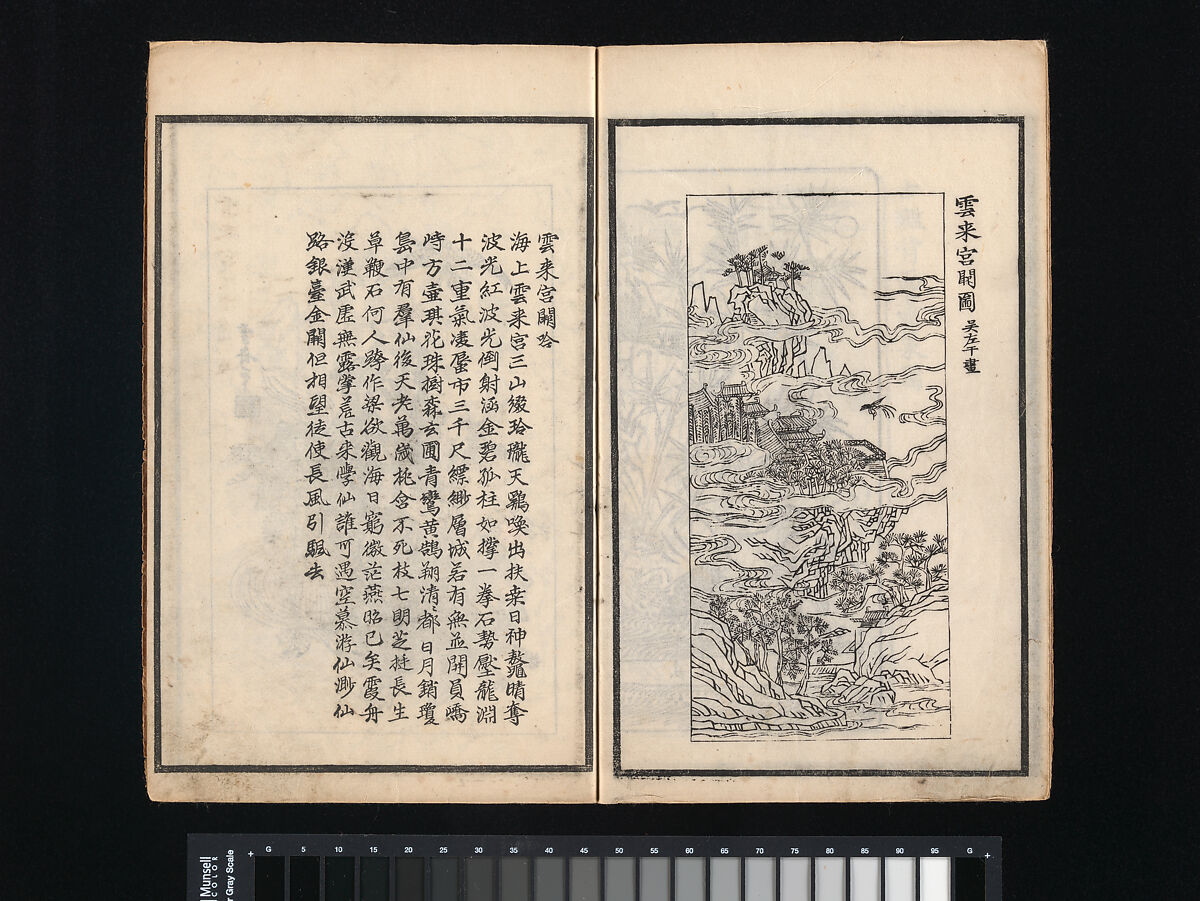 雲来宫闕圖 吴左千畫
雲来宫闕
海上雲来宫三山綴玲瓏天鷄喚出扶桒日神鼇晴奪
波光紅波光倒射涵金碧孤柱如撑一拳石勢壓龍淵
十二重氣凌蜃市三千尺縹緲層城若有無並開員嶠
峙方壷琪花珠樹森玄圃青鸞黄鵠翔清都日月銷瓊
島中有羣仙後天老萬歲桃含不死枝七明芝挺長生
草鞭石何人作梁欲觀海日窮微茫燕昭已矣霞舟
没漢武虚無露掌荒古来學仙誰可遇空慕游仙渺仙
路銀臺金闕但相望徒使長風引颿去
Munsell
COLOR
Gray Scale
G 5 10 15 20 25 30 35 40 45 50 55 60 65 70 75 80 85 90 95 G